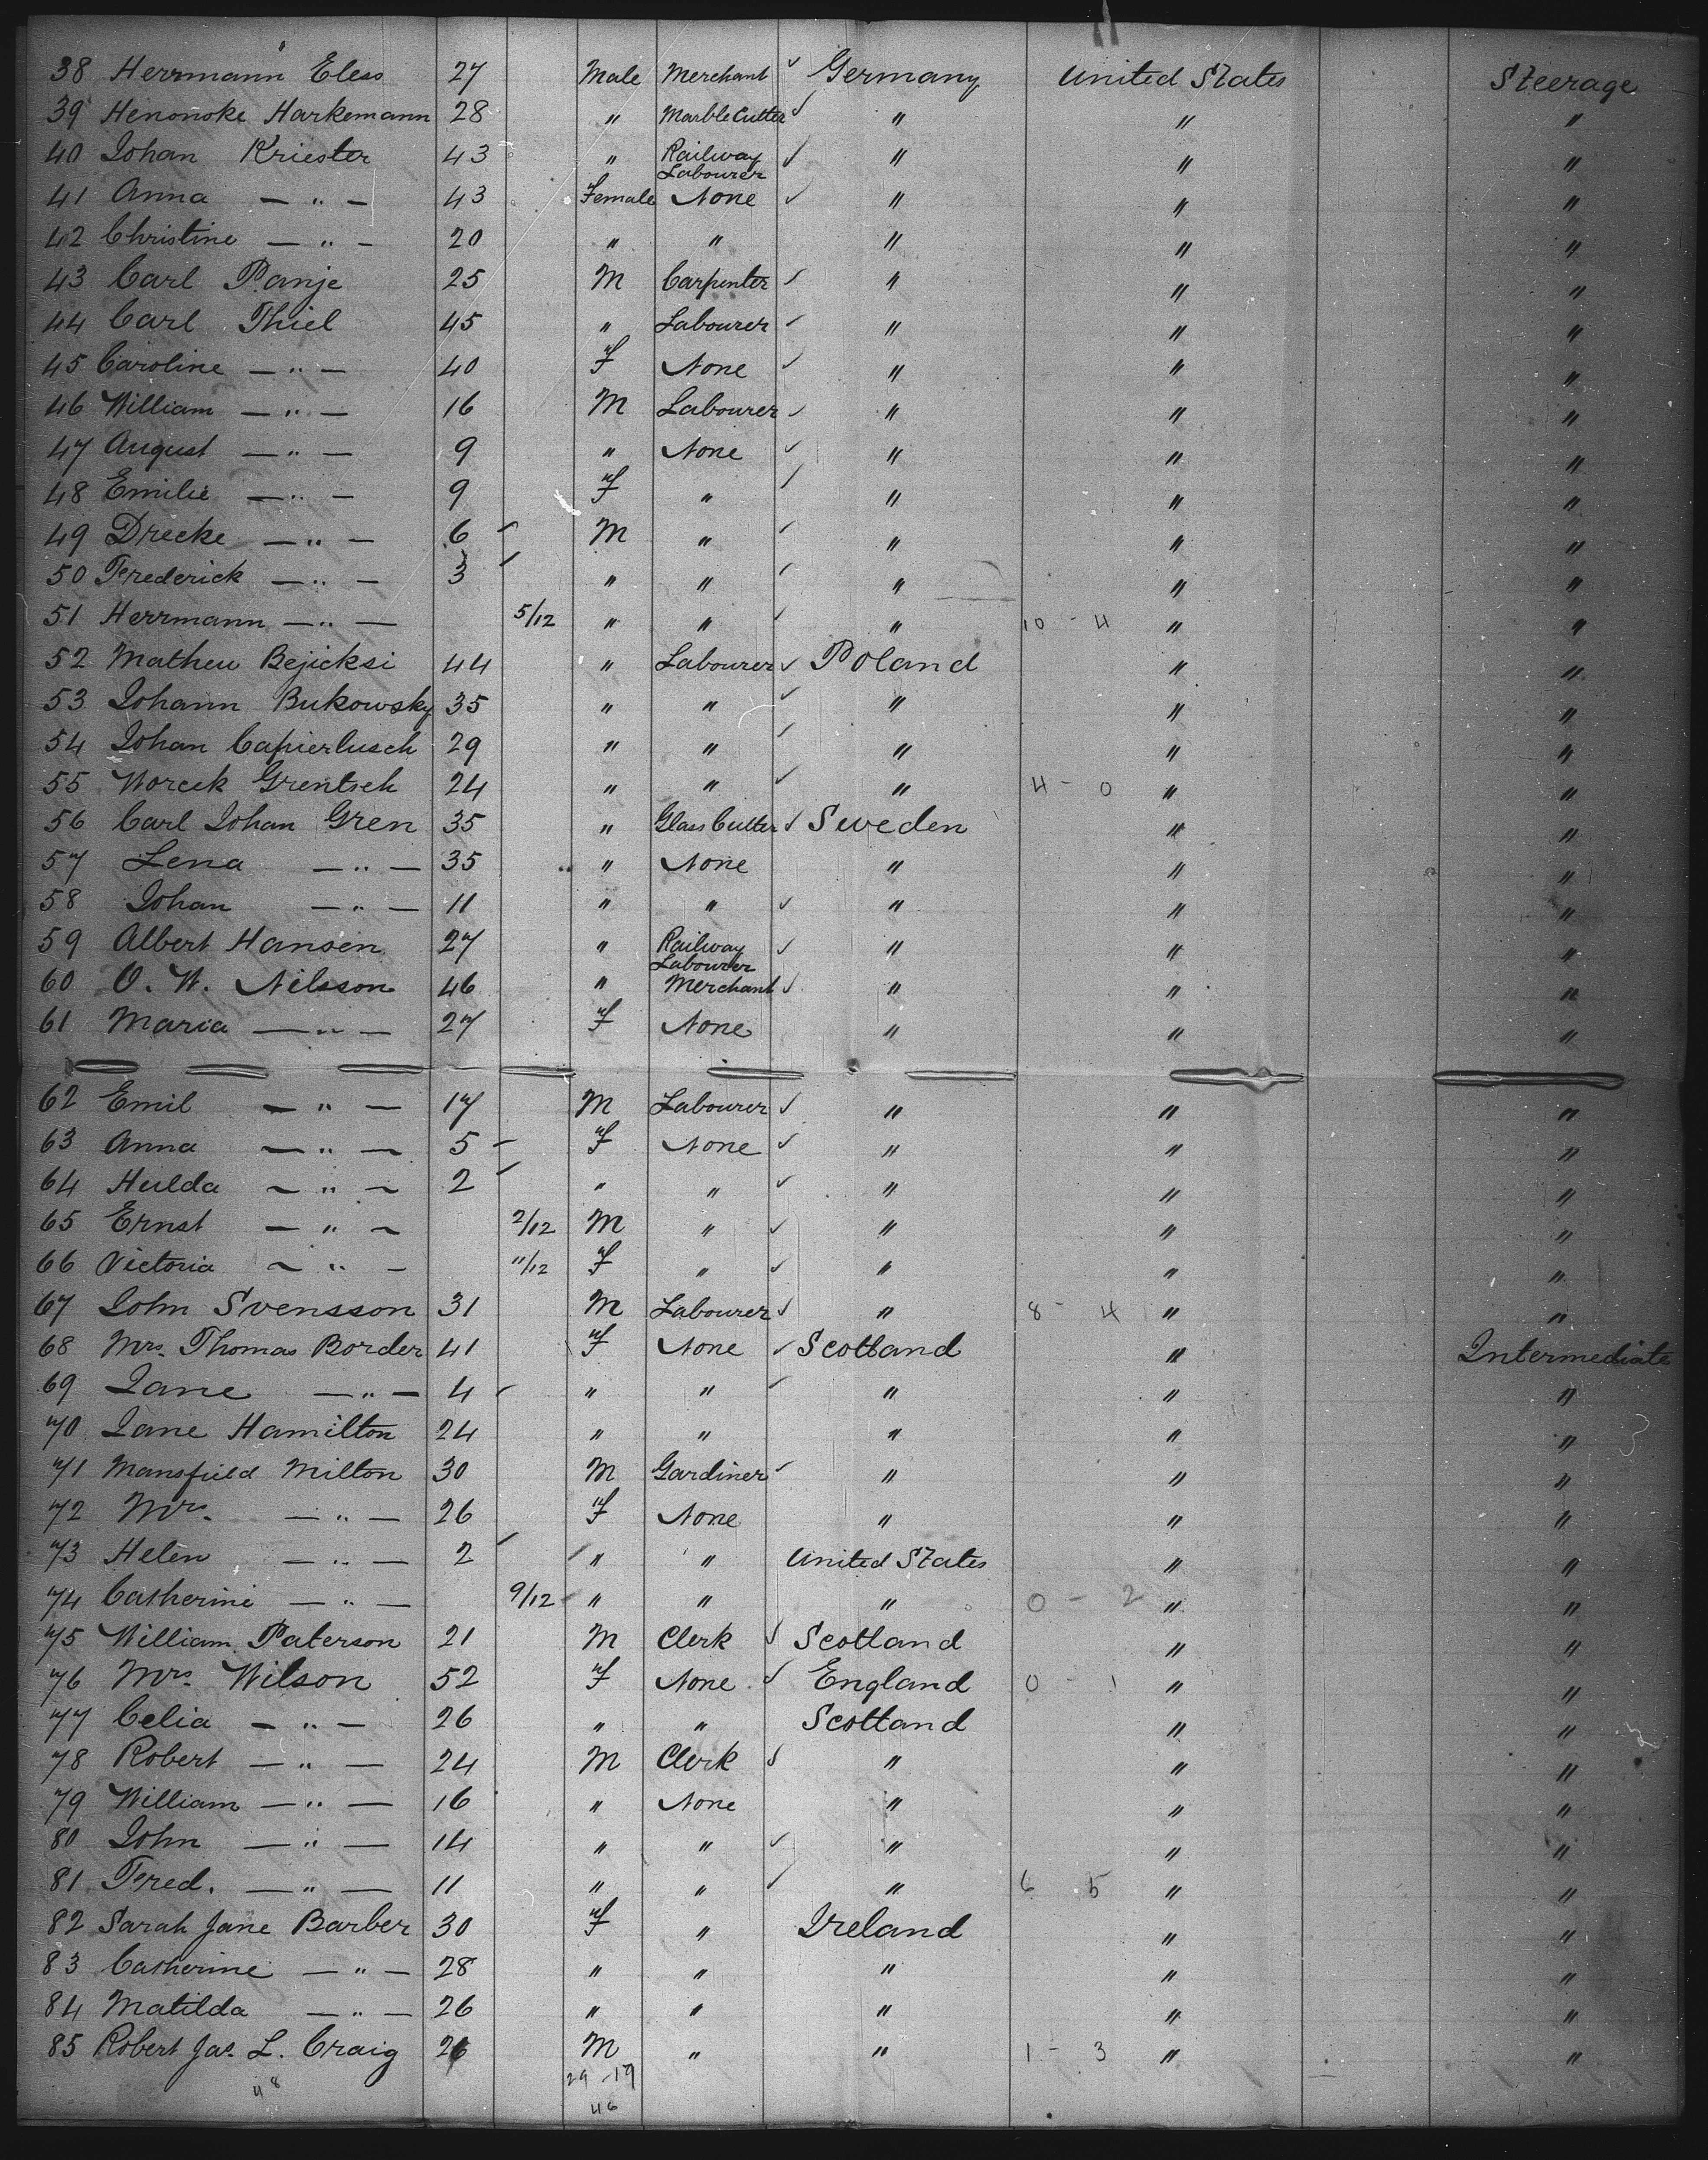 38 Herrmann Eless 27 Male Merchant ✓ Germany United States Steerage
39 Henonoke Harkemann 28 " Marble Cutter ✓ " " "
40 Johan Kriester 43 " Railway Labourer ✓ " " "
41 Anna — " — 43 Female None ✓ " " "
42 Christine — " — 20 " " " " "
43 Carl Panje 25 M Carpenter ✓ " " "
44 Carl Thiel 45 " Labourer ✓ " " "
45 Caroline — " — 40 F None ✓ " " "
46 William — " — 16 M Labourer ✓ " " "
47 August — " — 9 " None ✓ " " "
48 Emilie — " — 9 F " ✓ " " "
49 Drecke — " — 6 M " ✓ " " "
50 Frederick — " — 3 " " ✓ " " "
51 Herrmann — " — 5/12 " " ✓ " 10 - 4 " "
52 Matheu Bejicksi 44 " Labourer ✓ Poland " "
53 Johann Bukowsky 35 " " ✓ " " "
54 Johan Capierlusch 29 " " ✓ " " "
55 Worcek Grentsch 24 " " ✓ " 4 - 0 " "
56 Carl Johan Gren 35 " Glass Cutter ✓ Sweden " "
57 Lena — " — 35 " None " " "
58 Johan — " — 11 " " ✓ " " "
59 Albert Hansen 27 " Railway Labourer ✓ " " "
60 O. W. Nilsson 46 " Merchant ✓ " " "
61 Maria — " — 27 F None " " "
62 Emil — " — 17 M Labourer ✓ " " "
63 Anna — " — 5 F None ✓ " " "
64 Hulda — " — 2 " " ✓ " " "
65 Ernst — " — 2/12 M " ✓ " " "
66 Victoria — " — 11/12 F " ✓ " " "
67 John Svensson 31 M Labourer ✓ " 8 - 4 " "
68 Mrs. Thomas Border 41 F None ✓ Scotland " Intermediate
69 Jane — " — 4 " " ✓ " " "
70 Jane Hamilton 24 " " " " "
71 Mansfield Milton 30 M Gardiner ✓ " " "
72 Mrs. — " — 26 F None " " "
73 Helen — " — 2 " " United States " "
74 Catherine — " — 9/12 " " " 0 - 2 " "
75 William Paterson 21 M Clerk ✓ Scotland " "
76 Mrs. Wilson 52 F None ✓ England 0 - 1 " "
77 Celia — " — 26 " " Scotland " "
78 Robert — " — 24 M Clerk ✓ " " "
79 William — " — 16 " None " " "
80 John — " — 14 " " ✓ " " "
81 Fred. — " — 11 " " ✓ " 6 5 " "
82 Sarah Jane Barber 30 F " Ireland " "
83 Catherine — " — 28 " " " " "
84 Matilda — " — 26 " " " " "
85 Robert Jas. L. Craig 26 M " " 1 - 3 " "
29 - 19
48
46